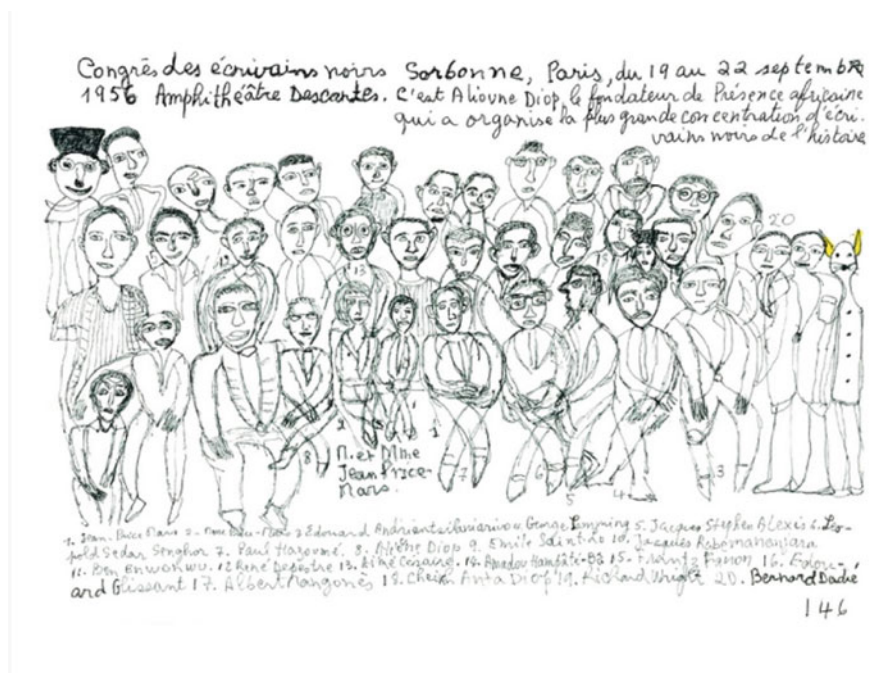 Congrès des écrivains noirs Sorbonne, Paris, du 19 au 22 septembre
1956 Amphithéâtre Descartes. C'est Alioune Diop, le fondateur de Présence africaine
qui a organisé la plus grande concentration d'écri-
vains noirs de l'histoire
20
12
19
13
15
2
1
8
M. et Mme
Jean Price-
Mars.
7
6
5
4
3
1. Jean Price Mars 2. Mme Price-Mars 3 Edouard Andriantsilaniarivo George Lamming 5. Jacques Stephen Alexis 6. Léo-
pold Sedar Senghor 7. Paul Hazoumé. 8. Hélène Diop 9. Emile Saint 10. Jacques Rabemananjara
11. Ben Enwonwu. 12 René Depestre 13. Aimé Césaire. 14. Amadou Hambâté-Bâ 15. Frantz Fanon 16. Edou-
ard Glissant 17. Albert Mangonès 18. Cheikh Anta Diop 19. Richard Wright 20. Bernard Dadié
146